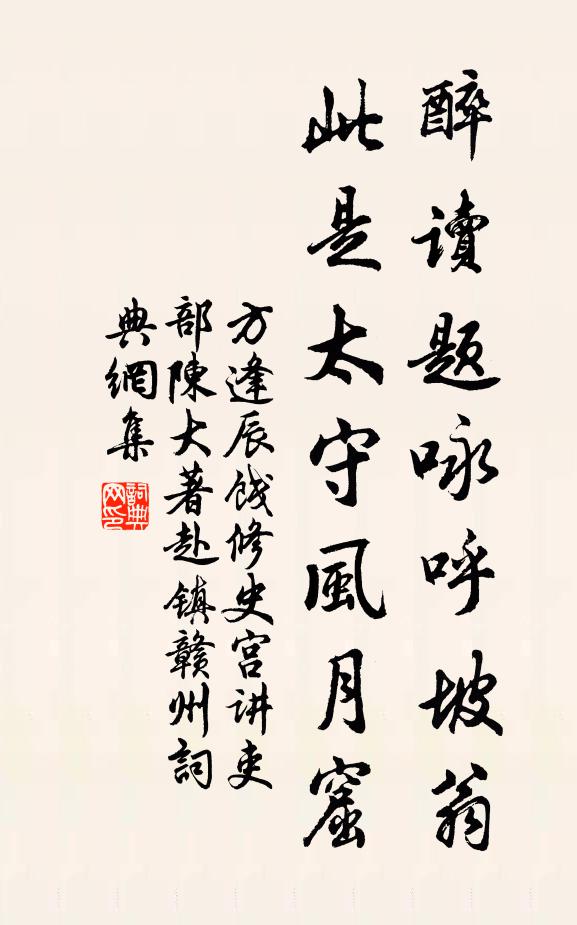 醉讀题咏呼坡翁
此是太守風月窟
方逢辰饯修史宫讲吏
部陳大著赴镇赣州詞
典網集
詞典
网印